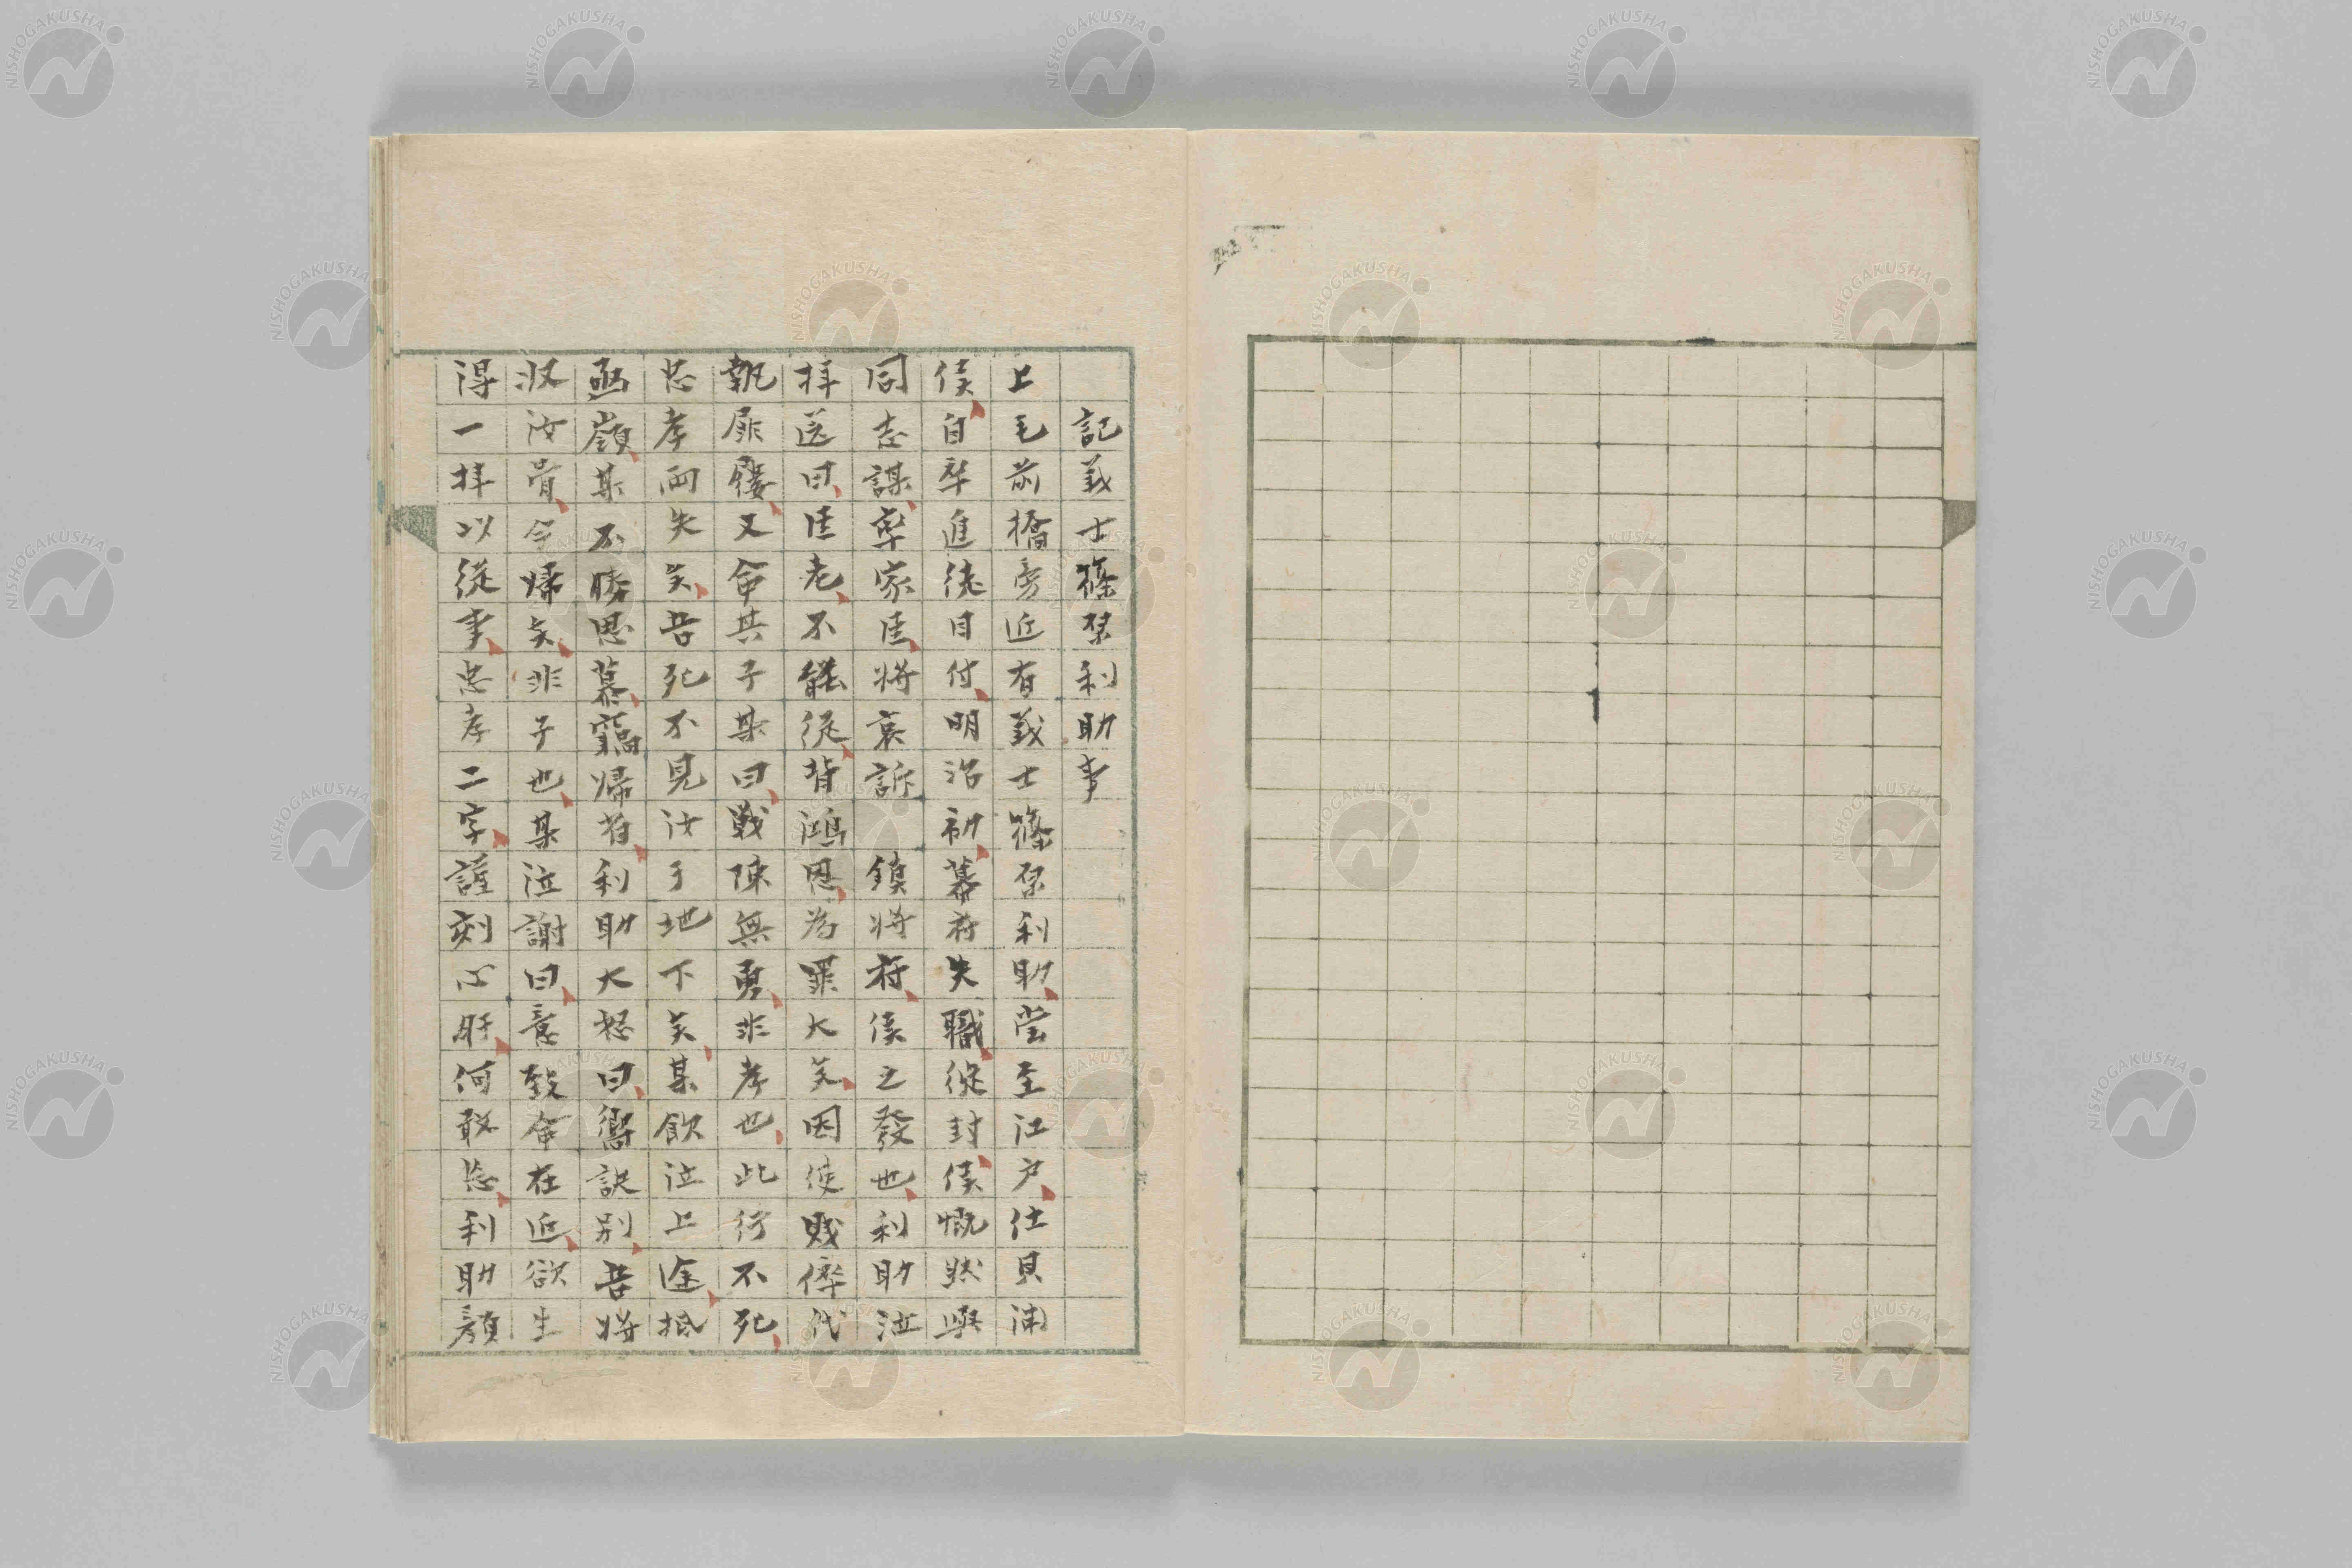 記義士篠原利助事
上毛前橋旁近有義士篠原利助嘗至江戸仕貝浦
侯自卒進徒目付明治初幕府失職從封侯慨然與
同志謀率家臣將哀訴 鎮將府侯之發也利助泣
拜送曰臣老不能從背鴻恩為罪大矣因使賤倅代
執扉屨又命其子某曰戰陳無勇非孝也此行不死
忠孝両失矣吾死不見汝于地下矣某飲泣上途抵
凾嶺某不勝思慕竊歸省利助大怒曰嚮訣別吾將
収汝骨今歸矣非子也某泣謝曰意致命在近欲生
得一拝以從事忠孝二字謹刻心肝何敢忘利助顔
NISHOGAKUSHA